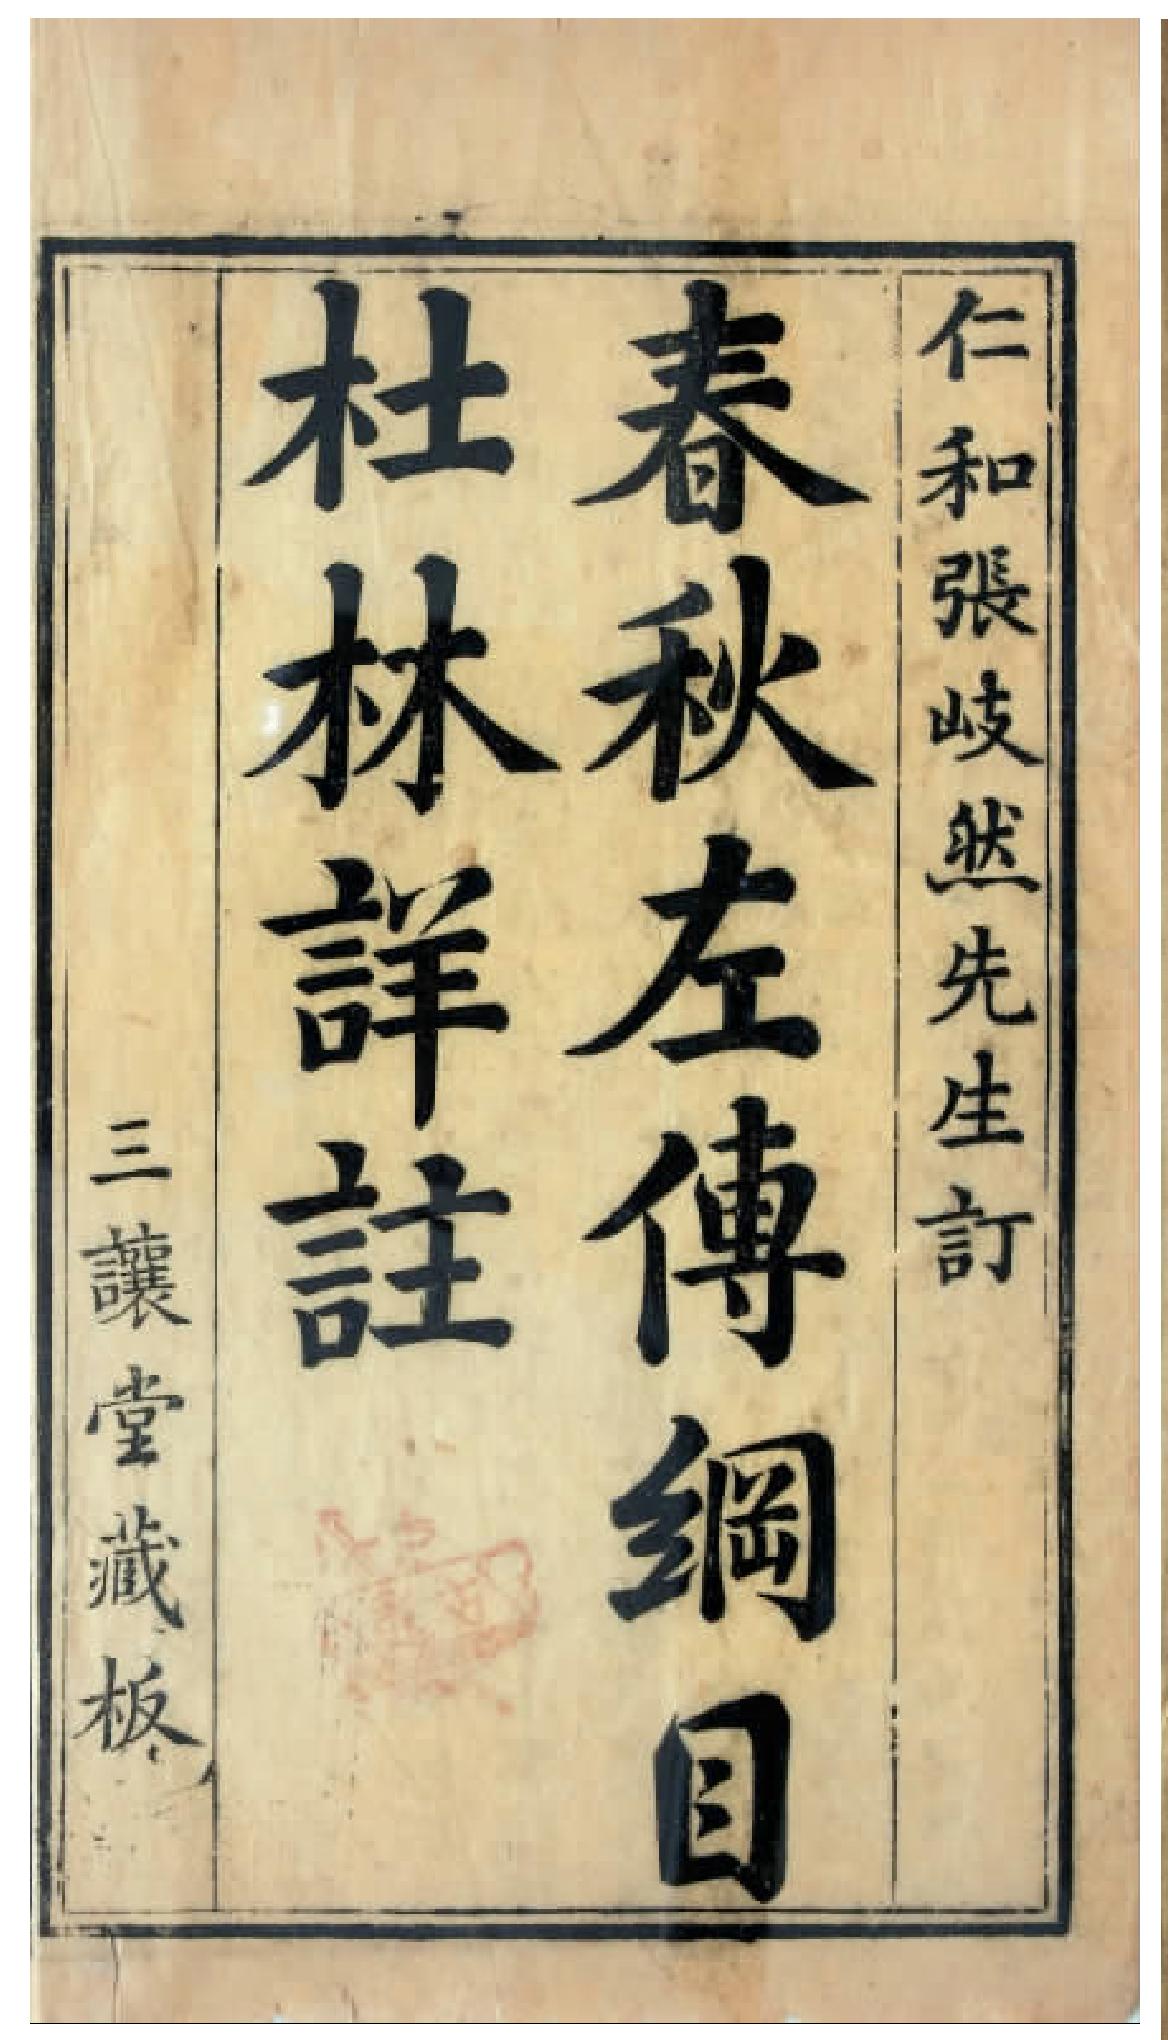 仁和張岐然先生訂
春秋左傳綱目
杜林詳註
三讓堂藏板